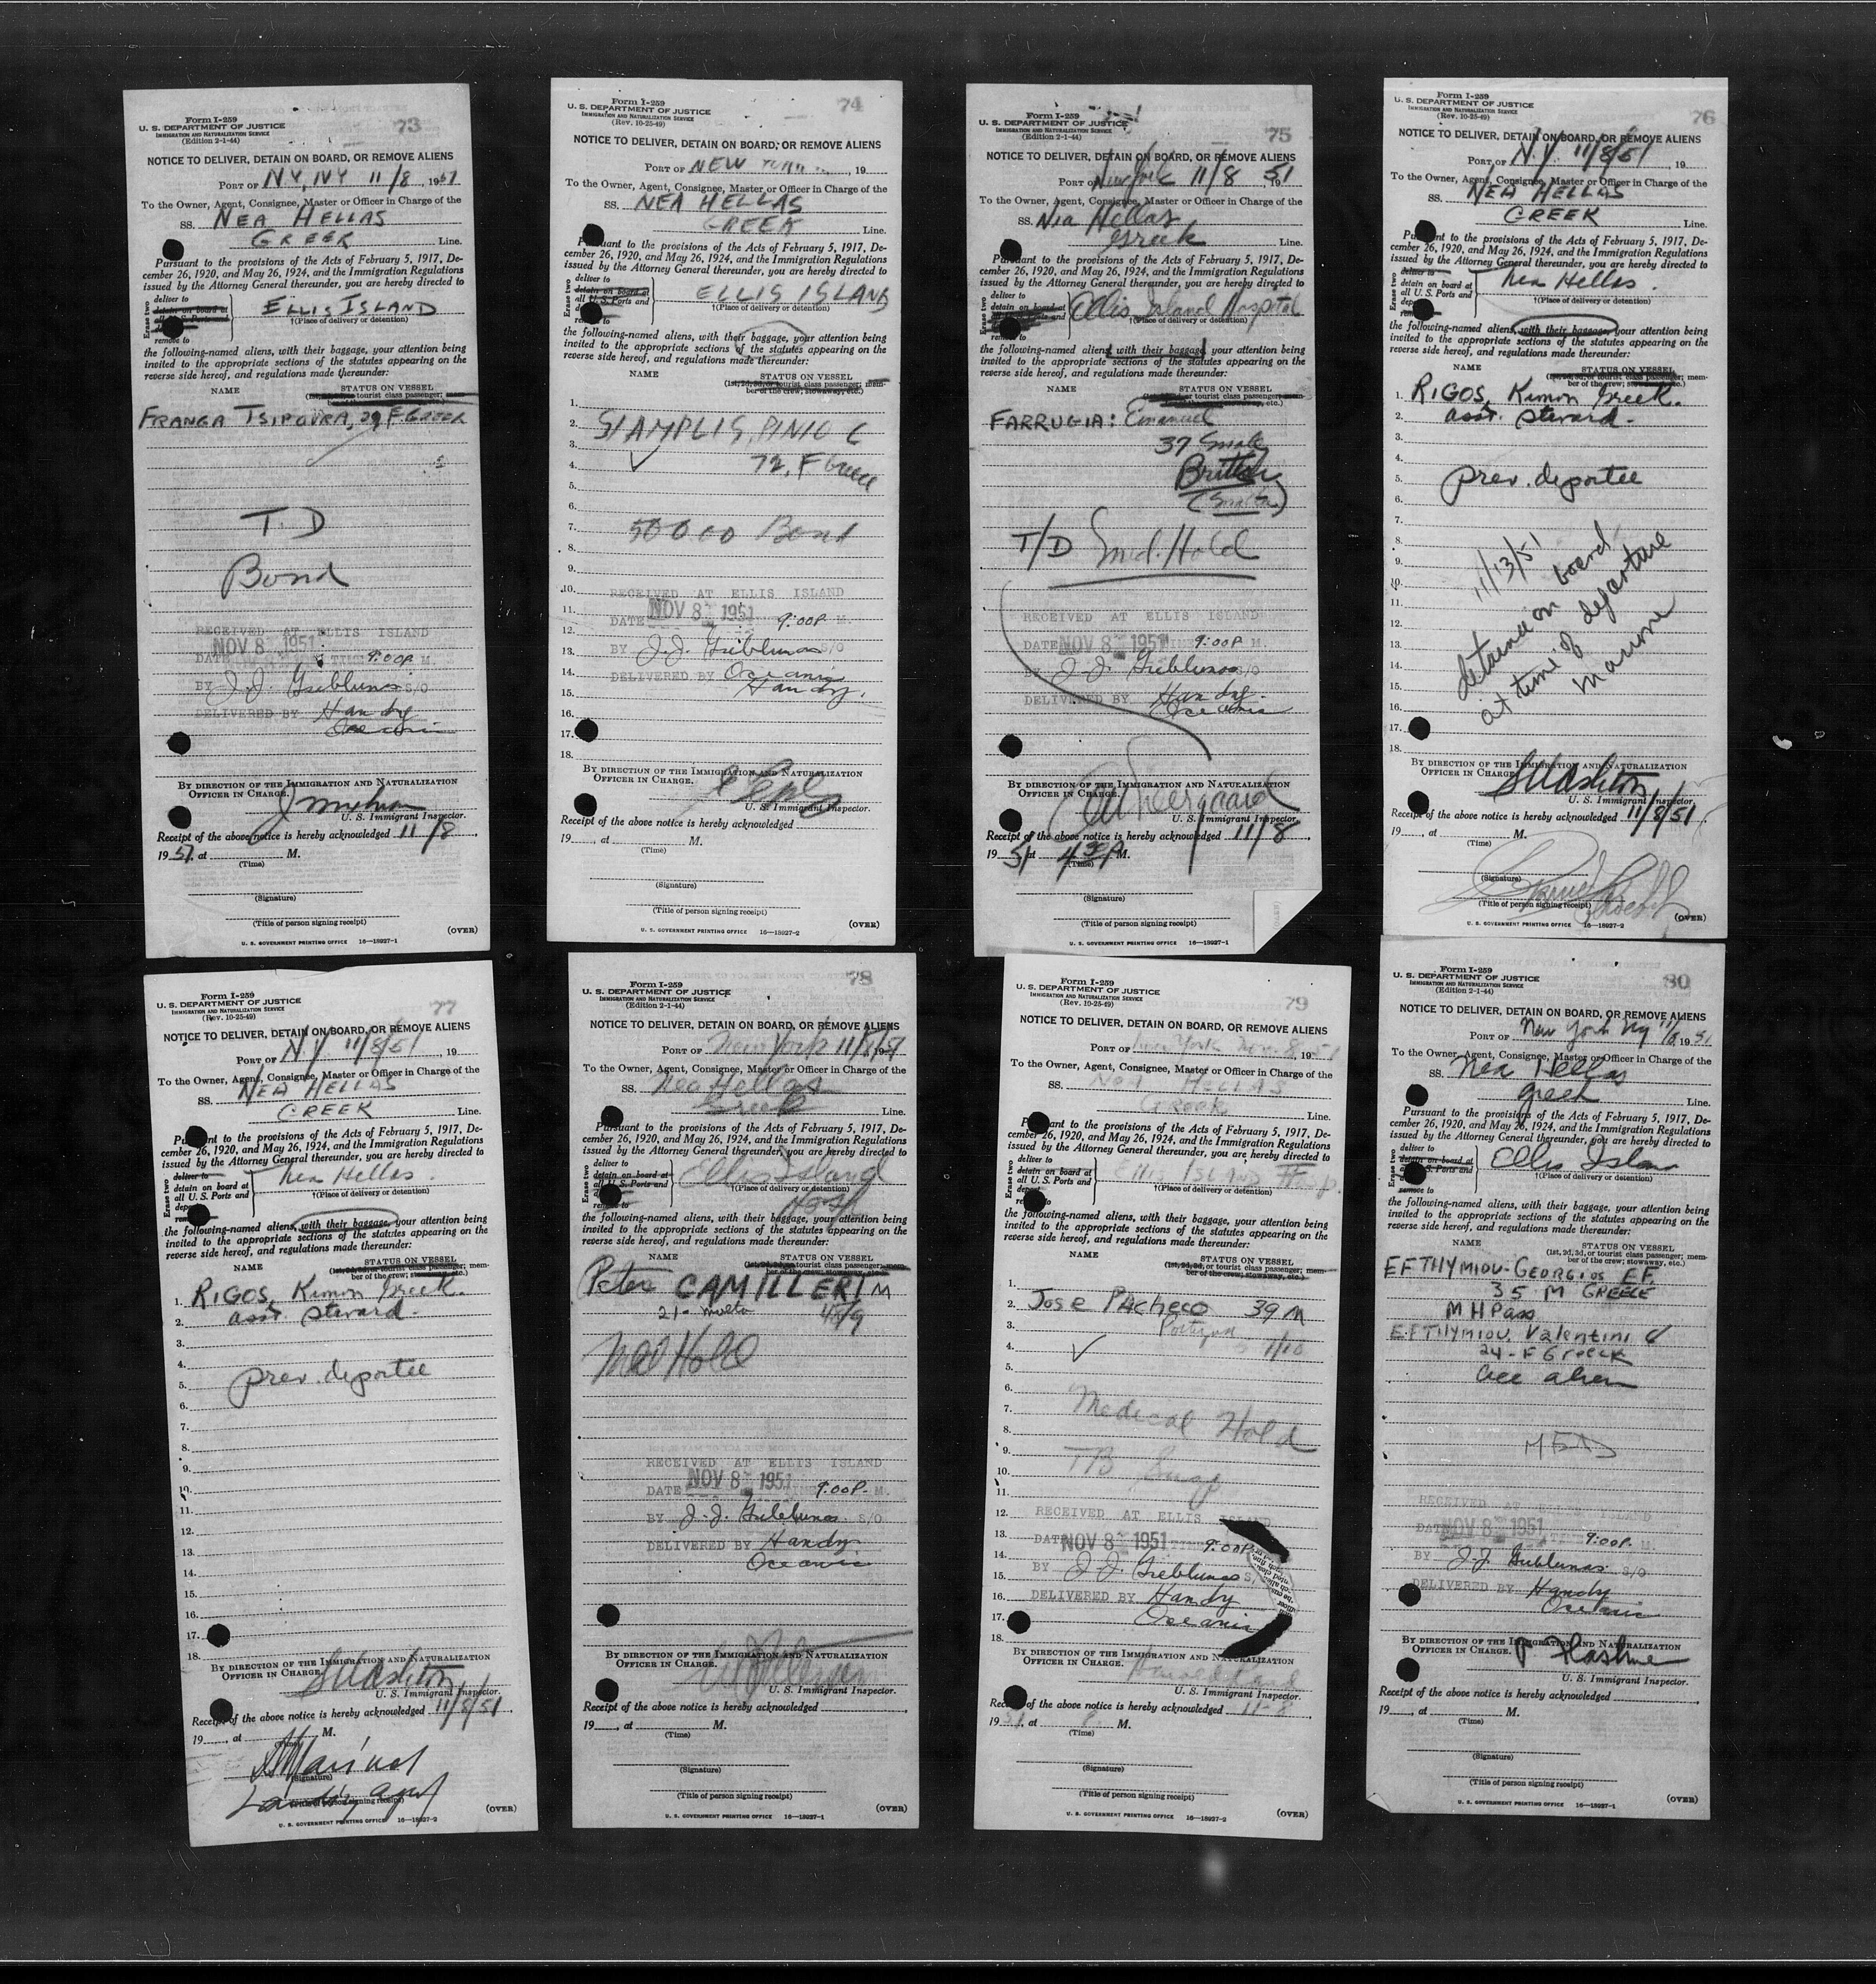 73
Form I-259
U. S. DEPARTMENT OF JUSTICE
IMMIGRATION AND NATURALIZATION SERVICE
(Edition 2-1-44)
NOTICE TO DELIVER, DETAIN ON BOARD, OR REMOVE ALIENS
PORT OF NY, NY 11/8, 1951
To the Owner, Agent, Consignee, Master or Officer in Charge of the
SS. NEA HELLAS
GREEK Line.
Pursuant to the provisions of the Acts of February 5, 1917, De-
cember 26, 1920, and May 26, 1924, and the Immigration Regulations
issued by the Attorney General thereunder, you are hereby directed to
Erase two
deliver to
detain on board at
all U. S. Ports and
remove to
ELLIS ISLAND
†(Place of delivery or detention)
the following-named aliens, with their baggage, your attention being
invited to the appropriate sections of the statutes appearing on the
reverse side hereof, and regulations made thereunder:
NAME STATUS ON VESSEL
FRANGA TSIPOURA, 29 F. GREEK
T. D
Bond
RECEIVED AT ELLIS ISLAND
DATE NOV 8 1951 TIME 9:00P. M.
BY J. J. Gieblunas S/O
DELIVERED BY Handy
Oceanic
BY DIRECTION OF THE IMMIGRATION AND NATURALIZATION
OFFICER IN CHARGE.
U. S. Immigrant Inspector.
Receipt of the above notice is hereby acknowledged 11/8
1951, at M.
(Time)
(Signature)
(Title of person signing receipt)
(OVER)
U. S. GOVERNMENT PRINTING OFFICE 16—18927-1
74
Form I-259
U. S. DEPARTMENT OF JUSTICE
IMMIGRATION AND NATURALIZATION SERVICE
(Rev. 10-25-49)
NOTICE TO DELIVER, DETAIN ON BOARD, OR REMOVE ALIENS
PORT OF NEW YORK, 19
To the Owner, Agent, Consignee, Master or Officer in Charge of the
SS. NEA HELLAS
GREEK Line.
Pursuant to the provisions of the Acts of February 5, 1917, De-
cember 26, 1920, and May 26, 1924, and the Immigration Regulations
issued by the Attorney General thereunder, you are hereby directed to
Erase two
deliver to
detain on board at
all U. S. Ports and
remove to
ELLIS ISLAND
†(Place of delivery or detention)
the following-named aliens, with their baggage, your attention being
invited to the appropriate sections of the statutes appearing on the
reverse side hereof, and regulations made thereunder:
NAME STATUS ON VESSEL
(1st, 2d, 3d, or tourist class passenger; mem-
ber of the crew; stowaway, etc.)
1.
2.
3.
4. 72, F
5.
6.
7. 500 00 Bond
8.
9.
10. RECEIVED AT ELLIS ISLAND
11. DATE NOV 8 1951 9:00P. M.
12.
13. BY J. J. Gieblunas S/O
14. DELIVERED BY Oceanic
15. Handy.
16.
17.
18.
BY DIRECTION OF THE IMMIGRATION AND NATURALIZATION
OFFICER IN CHARGE.
U. S. Immigrant Inspector.
Receipt of the above notice is hereby acknowledged
19, at M.
(Time)
(Signature)
(Title of person signing receipt)
(OVER)
U. S. GOVERNMENT PRINTING OFFICE 16—18927-2
75
Form I-259
U. S. DEPARTMENT OF JUSTICE
IMMIGRATION AND NATURALIZATION SERVICE
(Edition 2-1-44)
NOTICE TO DELIVER, DETAIN ON BOARD, OR REMOVE ALIENS
PORT OF New York 11/8 51
To the Owner, Agent, Consignee, Master or Officer in Charge of the
SS. Nea Hellas
Greek Line.
Pursuant to the provisions of the Acts of February 5, 1917, De-
cember 26, 1920, and May 26, 1924, and the Immigration Regulations
issued by the Attorney General thereunder, you are hereby directed to
Erase two
deliver to
detain on board at
Ellis Island Hospital
†(Place of delivery or detention)
the following-named aliens, with their baggage, your attention being
invited to the appropriate sections of the statutes appearing on the
reverse side hereof, and regulations made thereunder:
NAME STATUS ON VESSEL
FARRUGIA: Emanuel
37
British
T/D Med. Hold
RECEIVED AT ELLIS ISLAND
DATE NOV 8 1951 9:00P. M.
BY J. J. Gieblunas S/O
DELIVERED BY Handy.
Oceanic
BY DIRECTION OF THE IMMIGRATION AND NATURALIZATION
OFFICER IN CHARGE.
U. S. Immigrant Inspector.
Receipt of the above notice is hereby acknowledged 11/8
1951, at 4 30 P M.
(Time)
(Signature)
(Title of person signing receipt)
U. S. GOVERNMENT PRINTING OFFICE 16—18927-1
76
Form I-259
U. S. DEPARTMENT OF JUSTICE
IMMIGRATION AND NATURALIZATION SERVICE
(Rev. 10-25-49)
NOTICE TO DELIVER, DETAIN ON BOARD, OR REMOVE ALIENS
PORT OF N.Y. 11/8/51, 19
To the Owner, Agent, Consignee, Master or Officer in Charge of the
SS. NEA HELLAS
GREEK Line.
Pursuant to the provisions of the Acts of February 5, 1917, De-
cember 26, 1920, and May 26, 1924, and the Immigration Regulations
issued by the Attorney General thereunder, you are hereby directed to
Erase two
deliver to
detain on board at
all U. S. Ports and
Nea Hellas.
†(Place of delivery or detention)
the following-named aliens, with their baggage, your attention being
invited to the appropriate sections of the statutes appearing on the
reverse side hereof, and regulations made thereunder:
NAME STATUS ON VESSEL
(1st, 2d, 3d, or tourist class passenger; mem-
ber of the crew; stowaway, etc.)
1. RIGOS, Kimon Greek.
2. asst. steward.
3.
4.
5. prev. deportee
6.
7.
8.
9.
10.
11.
12.
13.
14.
15.
16.
17.
18.
11/13/51
detained on board
at time of departure
BY DIRECTION OF THE IMMIGRATION AND NATURALIZATION
OFFICER IN CHARGE.
U. S. Immigrant Inspector.
Receipt of the above notice is hereby acknowledged 11/8/51.
19, at M.
(Time)
(Signature)
(Title of person signing receipt)
(OVER)
U. S. GOVERNMENT PRINTING OFFICE 16—18927-2
77
Form I-259
U. S. DEPARTMENT OF JUSTICE
IMMIGRATION AND NATURALIZATION SERVICE
(Rev. 10-25-49)
NOTICE TO DELIVER, DETAIN ON BOARD, OR REMOVE ALIENS
PORT OF N.Y 11/8/51, 19
To the Owner, Agent, Consignee, Master or Officer in Charge of the
SS. NEA HELLAS
GREEK Line.
Pursuant to the provisions of the Acts of February 5, 1917, De-
cember 26, 1920, and May 26, 1924, and the Immigration Regulations
issued by the Attorney General thereunder, you are hereby directed to
Erase two
deliver to
detain on board at
all U. S. Ports and
Nea Hellas.
†(Place of delivery or detention)
the following-named aliens, with their baggage, your attention being
invited to the appropriate sections of the statutes appearing on the
reverse side hereof, and regulations made thereunder:
NAME STATUS ON VESSEL
(1st, 2d, 3d, or tourist class passenger; mem-
ber of the crew; stowaway, etc.)
1. RIGOS, Kimon Greek.
2. asst. steward.
3.
4.
5. prev. deportee
6.
7.
8.
9.
10.
11.
12.
13.
14.
15.
16.
17.
18.
BY DIRECTION OF THE IMMIGRATION AND NATURALIZATION
OFFICER IN CHARGE.
U. S. Immigrant Inspector.
Receipt of the above notice is hereby acknowledged 11/8/51
19, at M.
(Time)
(Signature)
(OVER)
U. S. GOVERNMENT PRINTING OFFICE 16—18927-2
78
Form I-259
U. S. DEPARTMENT OF JUSTICE
IMMIGRATION AND NATURALIZATION SERVICE
(Edition 2-1-44)
NOTICE TO DELIVER, DETAIN ON BOARD, OR REMOVE ALIENS
PORT OF New York 11/8/51
To the Owner, Agent, Consignee, Master or Officer in Charge of the
SS. Nea Hellas
Greek Line.
Pursuant to the provisions of the Acts of February 5, 1917, De-
cember 26, 1920, and May 26, 1924, and the Immigration Regulations
issued by the Attorney General thereunder, you are hereby directed to
Erase two
deliver to
detain on board at
all U. S. Ports and
Ellis Island
†(Place of delivery or detention)
Hosp
the following-named aliens, with their baggage, your attention being
invited to the appropriate sections of the statutes appearing on the
reverse side hereof, and regulations made thereunder:
NAME STATUS ON VESSEL
(1st, 2d, 3d, or tourist class passenger; mem-
ber of the crew; stowaway, etc.)
Peter CAMILLERI M
21- Malta
Med Hold
RECEIVED AT ELLIS ISLAND
DATE NOV 8 1951 9:00P. M.
BY J. J. Gieblunas S/O
DELIVERED BY Handy
Oceanic
BY DIRECTION OF THE IMMIGRATION AND NATURALIZATION
OFFICER IN CHARGE.
U. S. Immigrant Inspector.
Receipt of the above notice is hereby acknowledged
19, at M.
(Time)
(Signature)
(Title of person signing receipt)
(OVER)
U. S. GOVERNMENT PRINTING OFFICE 16—18927-1
79
Form I-259
U. S. DEPARTMENT OF JUSTICE
IMMIGRATION AND NATURALIZATION SERVICE
(Rev. 10-25-49)
NOTICE TO DELIVER, DETAIN ON BOARD, OR REMOVE ALIENS
PORT OF New York Nov. 8, 1951
To the Owner, Agent, Consignee, Master or Officer in Charge of the
SS. Nea HELLAS
Greek Line.
Pursuant to the provisions of the Acts of February 5, 1917, De-
cember 26, 1920, and May 26, 1924, and the Immigration Regulations
issued by the Attorney General thereunder, you are hereby directed to
Erase two
deliver to
detain on board at
all U. S. Ports and
Ellis ISLAND Hosp.
†(Place of delivery or detention)
the following-named aliens, with their baggage, your attention being
invited to the appropriate sections of the statutes appearing on the
reverse side hereof, and regulations made thereunder:
NAME STATUS ON VESSEL
(1st, 2d, 3d, or tourist class passenger; mem-
ber of the crew; stowaway, etc.)
1.
2. Jose Pacheco 39 M
3.
4. 1/10
5.
6.
7. Medical Hold
8.
9.
10. TB
11.
12. RECEIVED AT ELLIS ISLAND
13. DATE NOV 8 1951 TIME 9:00P
14.
15. BY J. J. Gieblunas S/
16. DELIVERED BY Handy
17. Oceanic
18.
BY DIRECTION OF THE IMMIGRATION AND NATURALIZATION
OFFICER IN CHARGE.
U. S. Immigrant Inspector.
Receipt of the above notice is hereby acknowledged 11-8
1951, at M.
(Time)
(Signature)
(Title of person signing receipt)
(OVER)
U. S. GOVERNMENT PRINTING OFFICE 16—18927-2
80
Form I-259
U. S. DEPARTMENT OF JUSTICE
IMMIGRATION AND NATURALIZATION SERVICE
(Edition 2-1-44)
NOTICE TO DELIVER, DETAIN ON BOARD, OR REMOVE ALIENS
PORT OF New York Ny 11/8 1951
To the Owner, Agent, Consignee, Master or Officer in Charge of the
SS. Nea Hellas
Greek Line.
Pursuant to the provisions of the Acts of February 5, 1917, De-
cember 26, 1920, and May 26, 1924, and the Immigration Regulations
issued by the Attorney General thereunder, you are hereby directed to
Erase two
deliver to
detain on board at
U. S. Ports and
remove to
Ellis Island
†(Place of delivery or detention)
the following-named aliens, with their baggage, your attention being
invited to the appropriate sections of the statutes appearing on the
reverse side hereof, and regulations made thereunder:
NAME STATUS ON VESSEL
(1st, 2d, 3d, or tourist class passenger; mem-
ber of the crew; stowaway, etc.)
EFTHYMIOU- GEORGIOS EF.
35 M GREECE
M H Pass
EFTHYMIOU, Valentini
24 - F Greek
acc alien
MED
RECEIVED AT ELLIS ISLAND
DATE NOV 8 1951 9:00P. M.
BY J. J. Gieblunas S/O
DELIVERED BY Handy
Oceanic
BY DIRECTION OF THE IMMIGRATION AND NATURALIZATION
OFFICER IN CHARGE.
U. S. Immigrant Inspector.
Receipt of the above notice is hereby acknowledged
19, at M.
(Time)
(Signature)
(Title of person signing receipt)
(OVER)
U. S. GOVERNMENT PRINTING OFFICE 16—18927-1